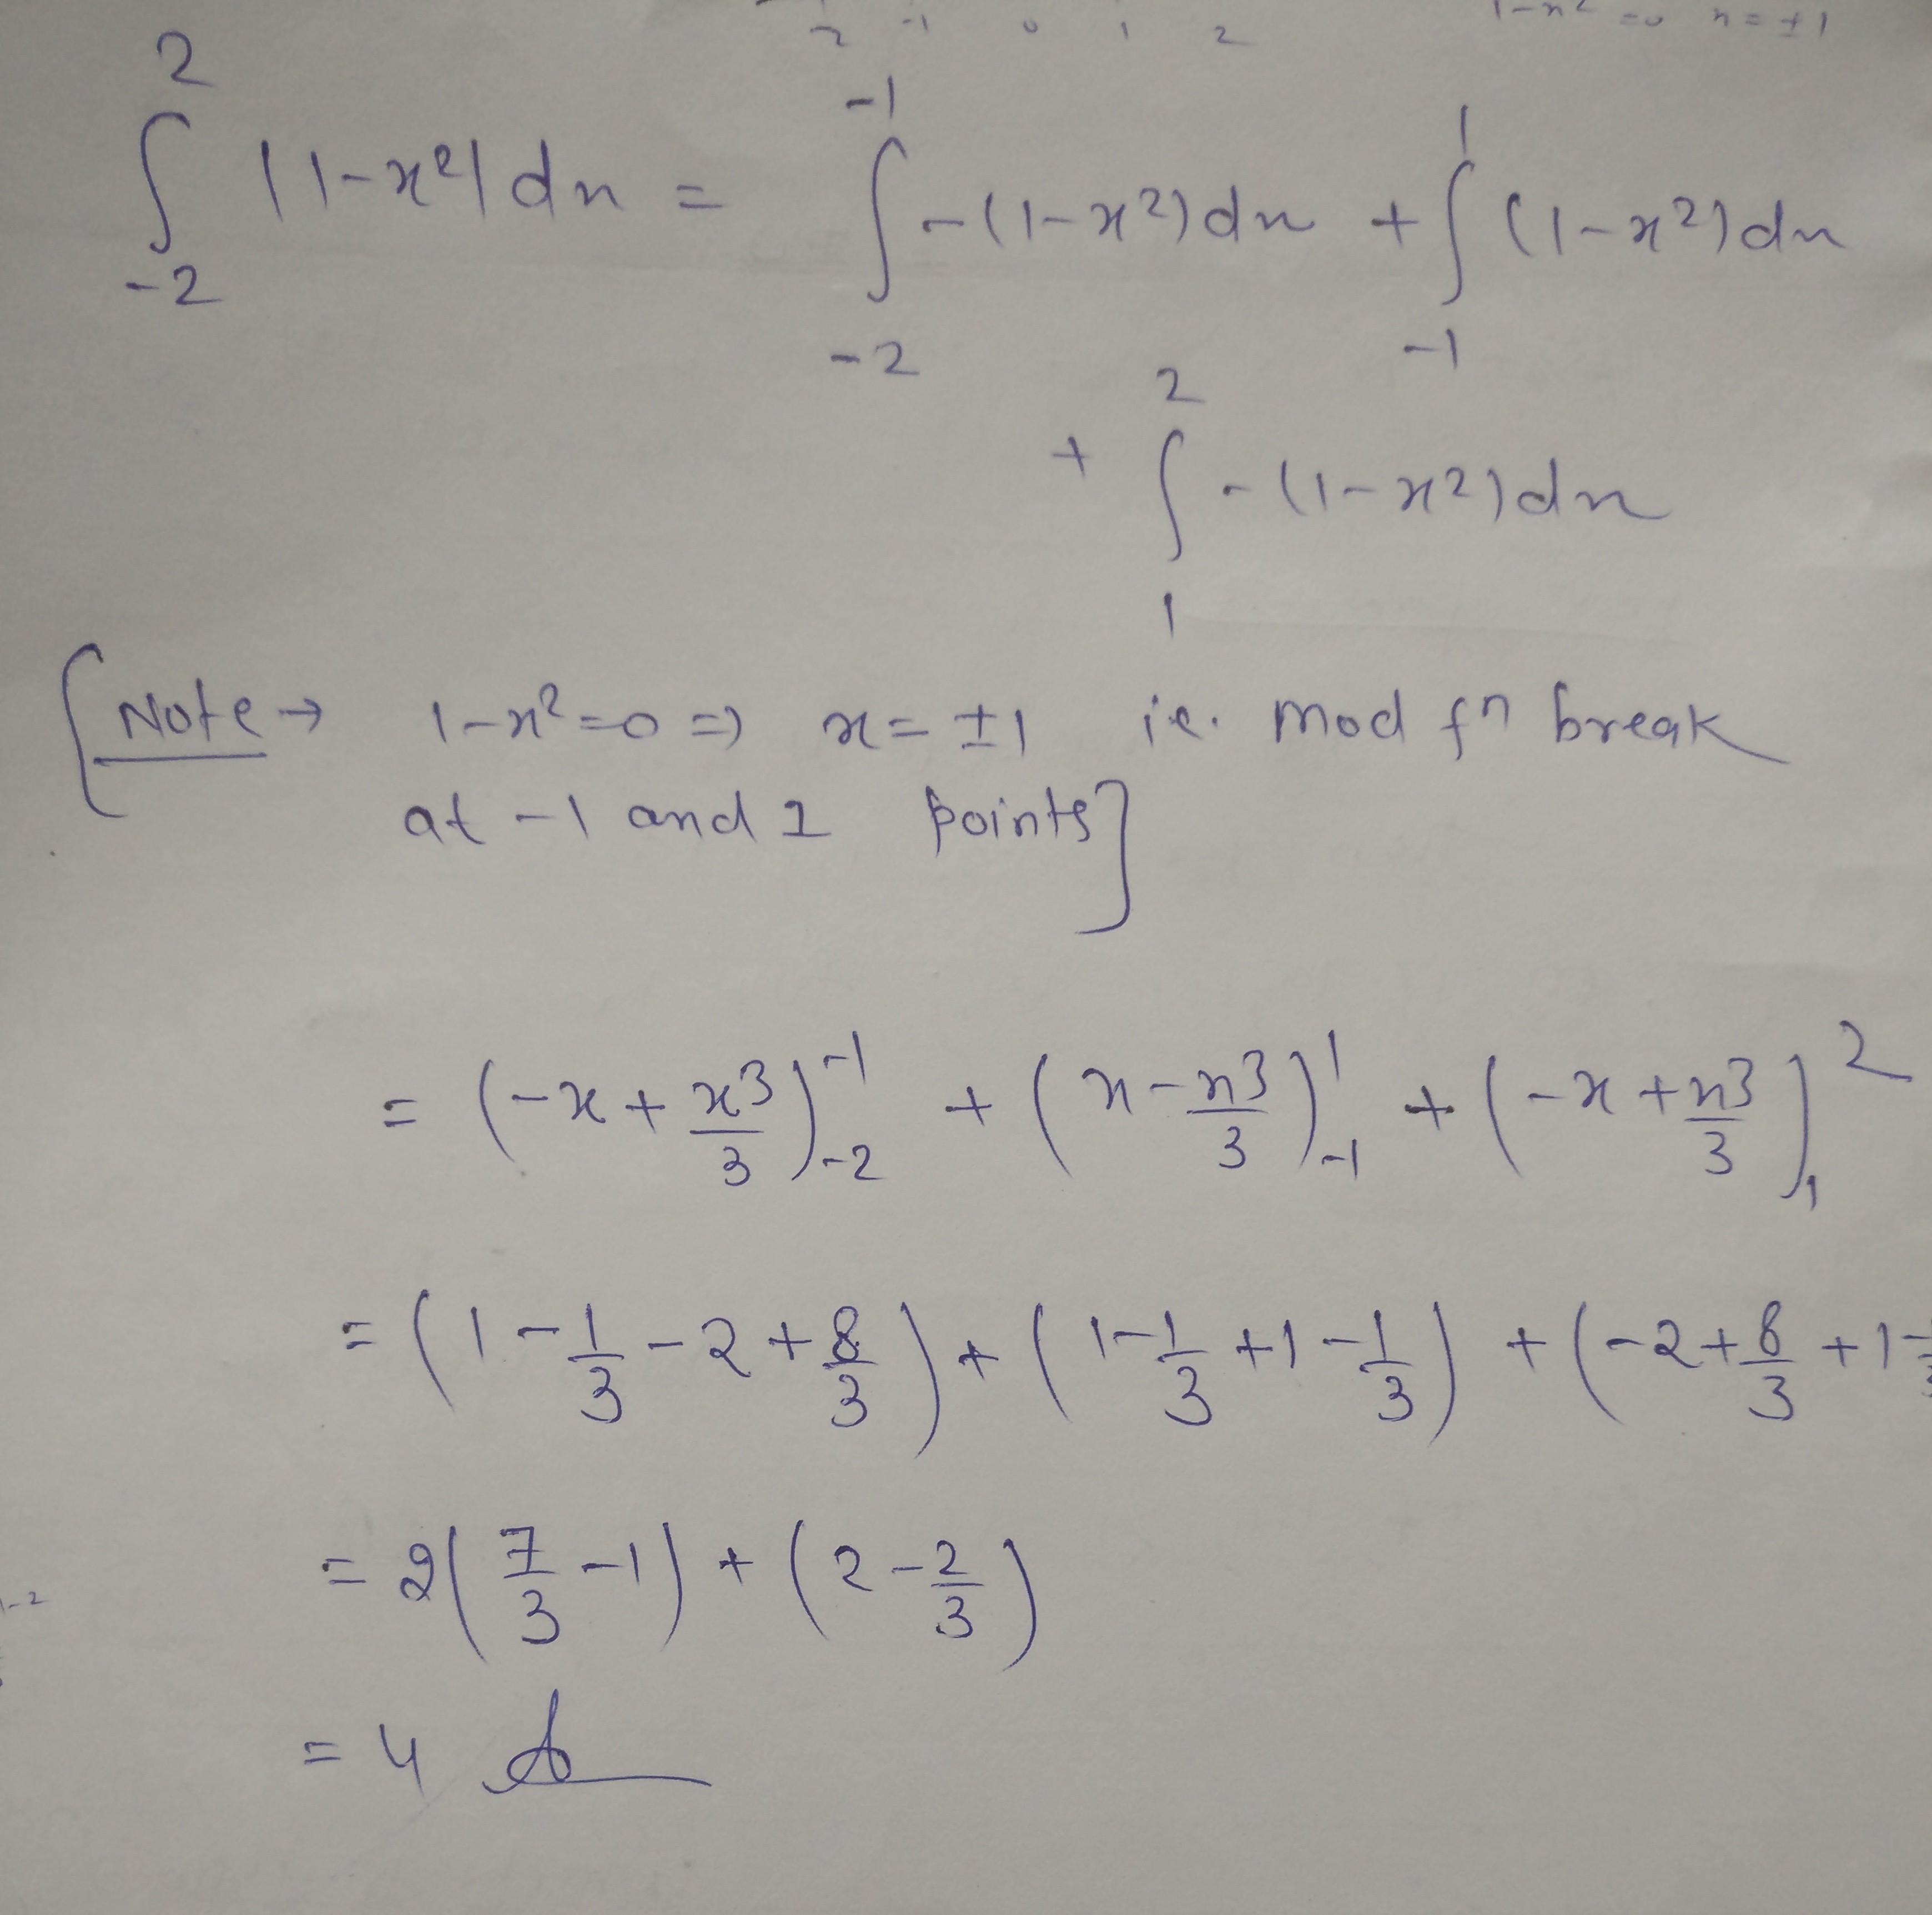 -2 -1 0 1 2 1-x² =0 x=±1
∫₋₂² |1-x²|dx = ∫₋₂⁻¹ -(1-x²)dx + ∫₋₁¹ (1-x²)dx
+ ∫₁² -(1-x²)dx
[Note → 1-x²=0 => x= ±1 ie. mod fn break
at -1 and 1 points]
= (-x + x³/3)₋₂⁻¹ + (x - x³/3)₋₁¹ + (-x + x³/3)₁²
= (1 - 1/3 - 2 + 8/3) + (1 - 1/3 + 1 - 1/3) + (-2 + 8/3 + 1 -
= 2(7/3 - 1) + (2 - 2/3)
= 4